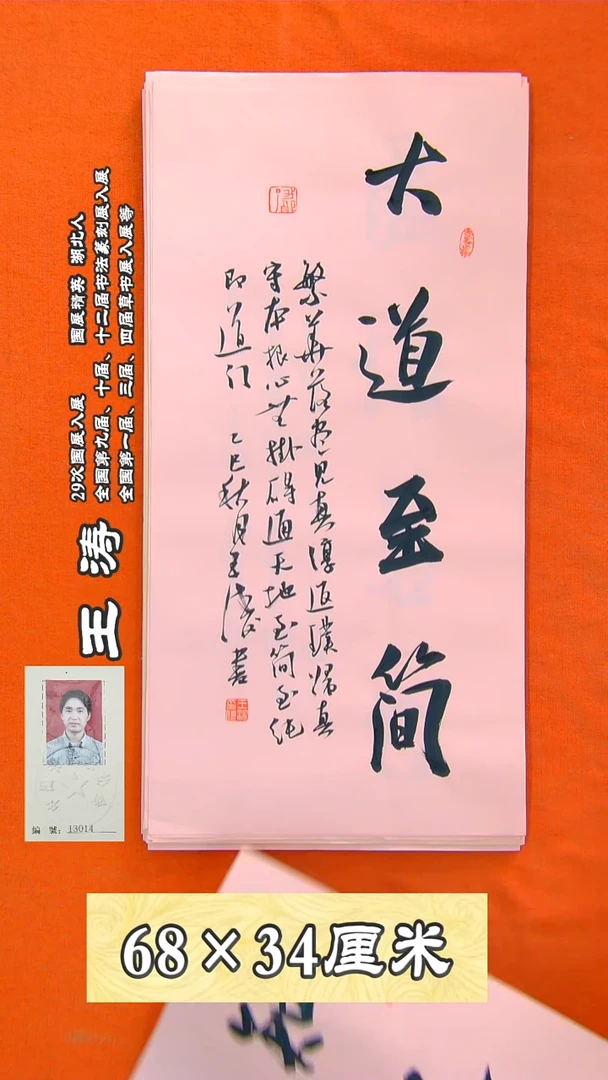 大道至简
繁華落尽见真淳返璞歸真
守本根心無掛碍通天地至简至纯
即道门 乙巳秋月王涛书
王涛
29次国展入展 国展精英 湖北人
全国第九届、十届、十二届书法篆刻展入展
全国第一届、三届、四届草书展入展等
编號：13014
68×34厘米